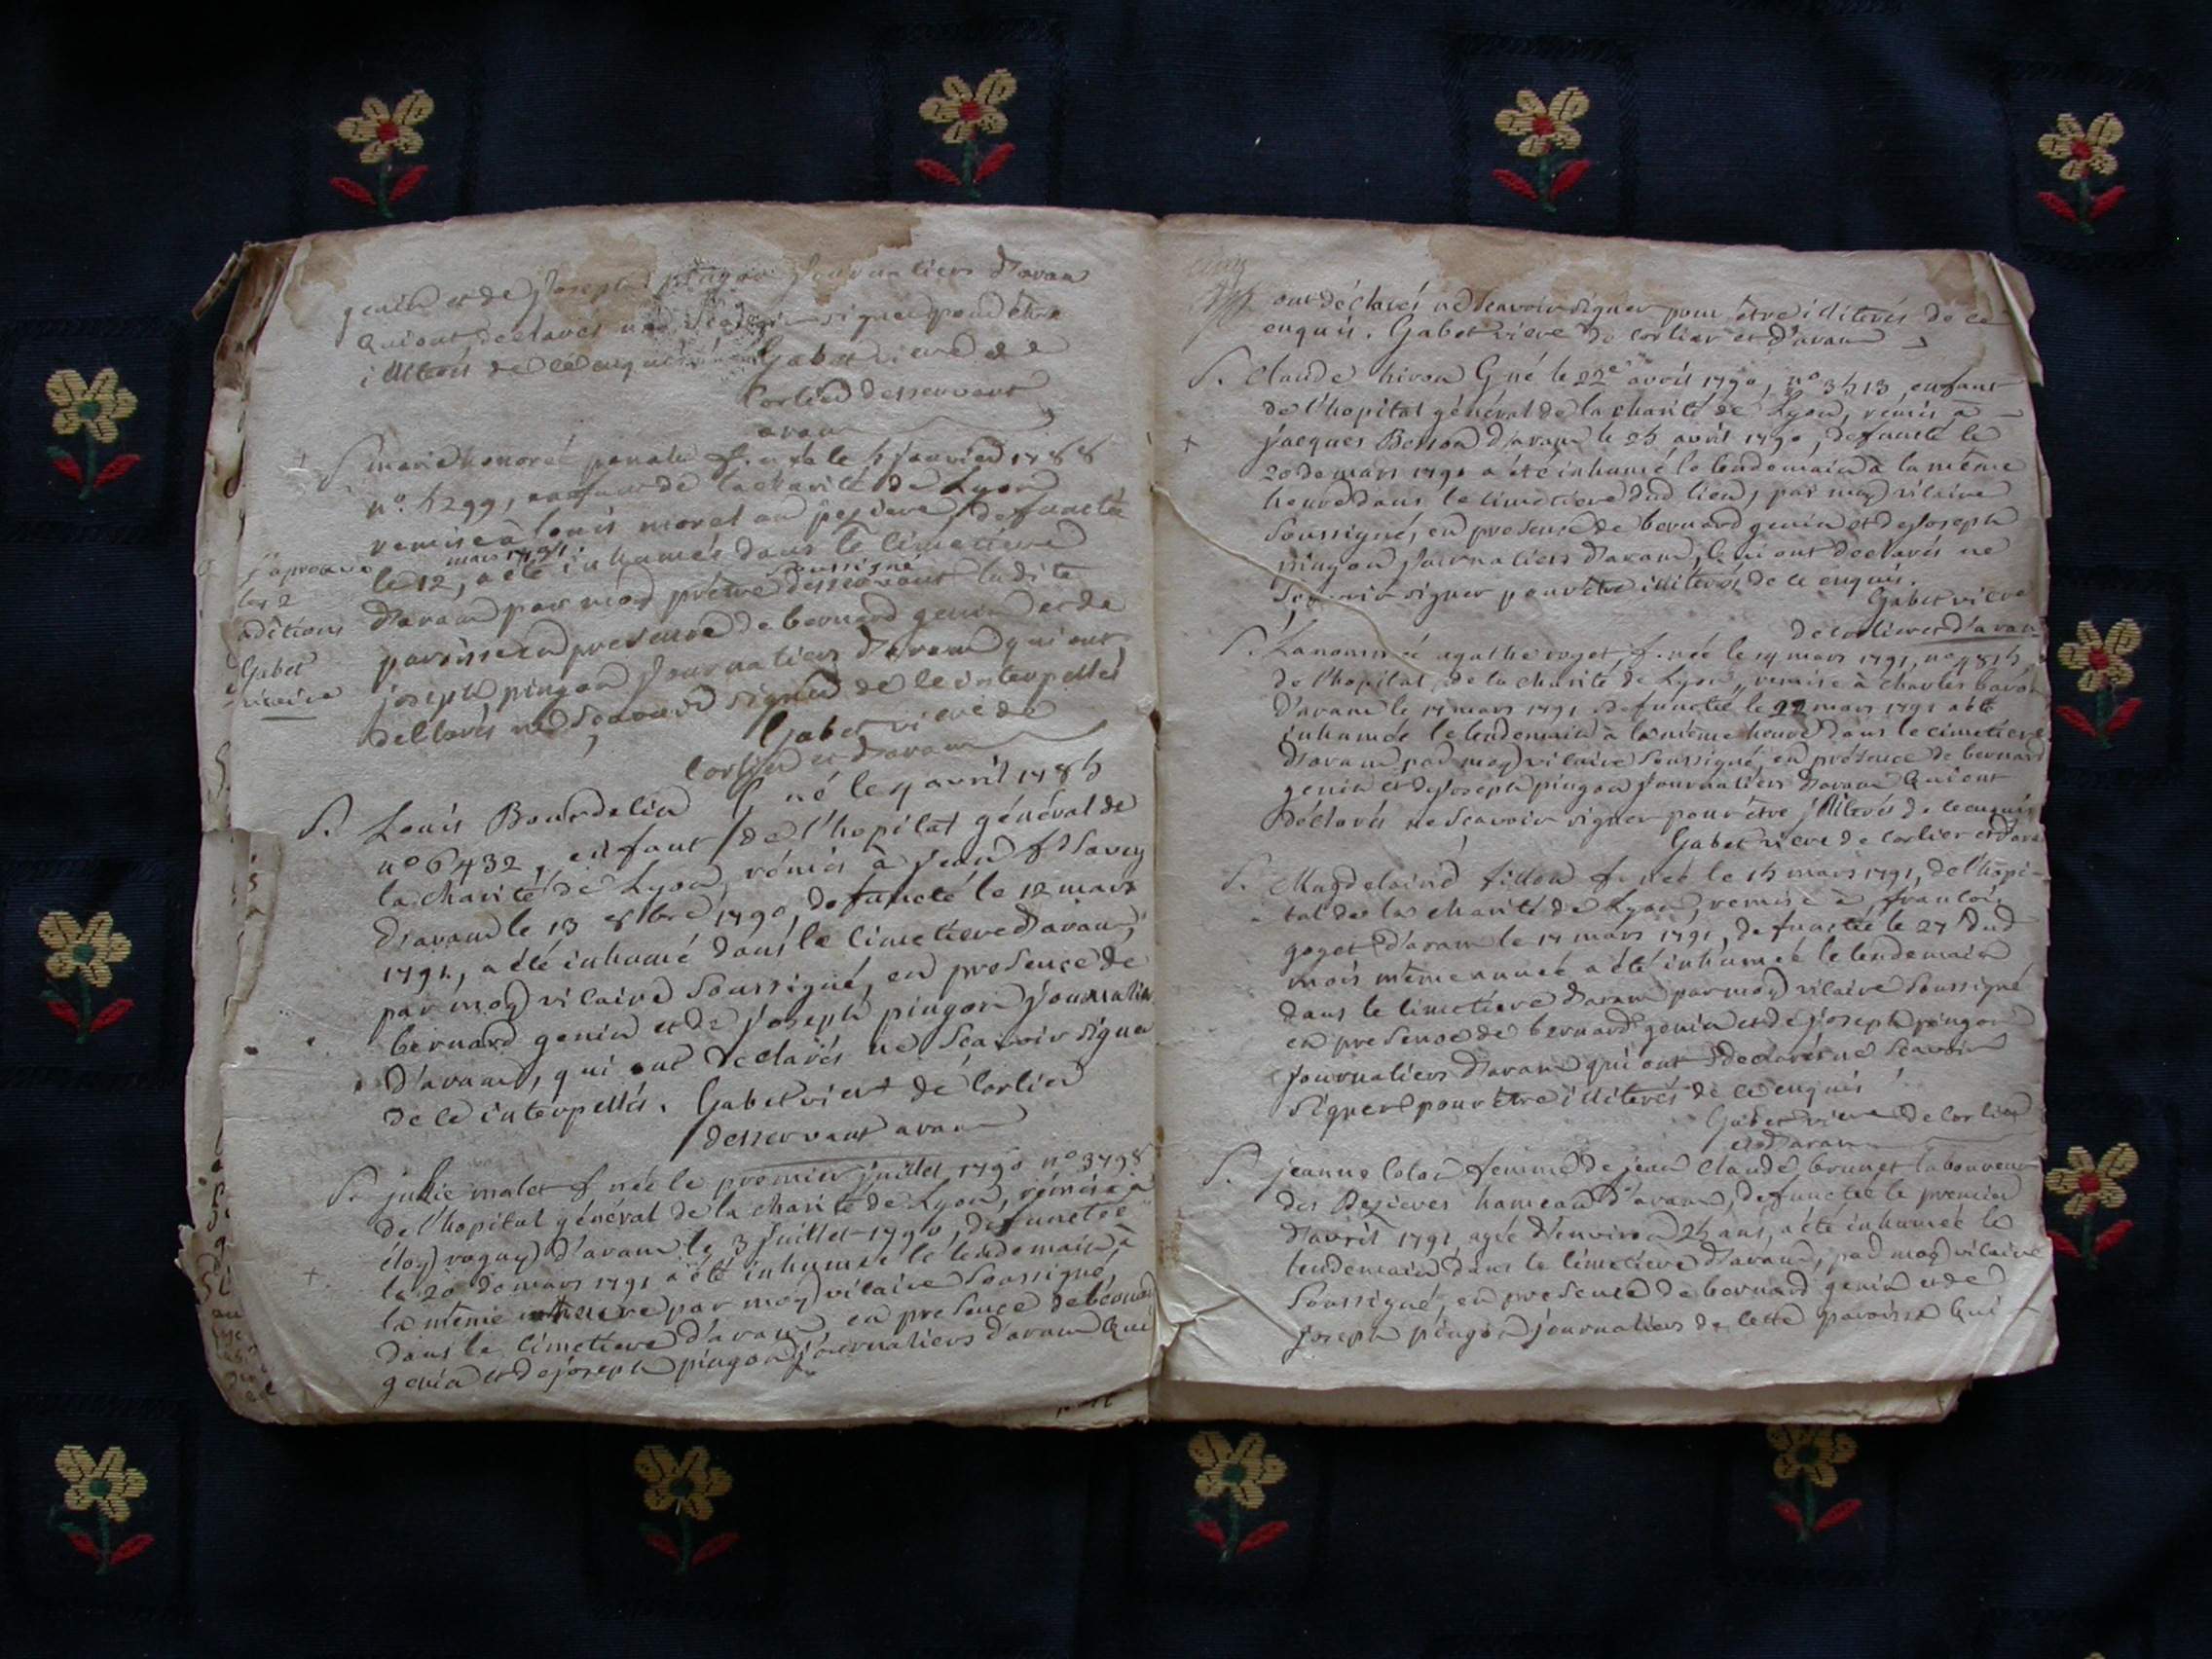 genin et de joseph pingon journaliers d'aran
qui ont declarés ne scavoir signer pour être
illiterés de ce enquis Gabet vicre de
Corlier desservant
aran
S marie honoreé f. née le 5 janvier 1788
n.° 5299, enfant de la charité de Lyon
remise à louis morel au pezieve, defunctée
mars 1791
le 12, a été inhumée dans le cimetiere
soussigné
d'aran par moy prêtre desservant ladite
paroisse en presence de bernard genin et de
joseph pingon journaliers d'aran qui ont
dellarés ne scavoir signer de ce interpellés
Gabet vicre de
Corlier et d'aran
j'aprouve
les 2
aditions
Gabet
vicaire
S. Louis Bourdelin G né le 4 avril 1785
n° 6432, enfant de l'hopital général de
la charité de Lyon, rémis à jean fs Savey
d'aran le 13 8bre 1790, defuncté le 12 mars
1791, a été inhumé dans le cimetiere d'aran,
par moy vicaire soussigné, en presence de
bernard genin et de joseph pingon journaliers
d'aran, qui ont declarés ne scavoir signer
de ce interpellés. Gabet vicre de Corlier
desservant aran
S. julie malet f née le premier juillet 1790 n° 3798
de l'hopital général de la charité de Lyon, rémise à
éloy ragay d'aran le 3 juillet 1790, defunctée
le 20 de mars 1791 a été inhumée le lendemain à
la même heure par moy vicaire soussigné,
dans le cimetiere d'aran en presence de bernard
genin et de joseph pingon journaliers d'aran qui
ont déclarés ne scavoir signer pour être illiterés de ce
enquis. Gabet vicre de corlier et d'aran
S. Claude hiron G né le 22e avril 1790, n° 3513 enfant
de l'hopital général de la charité de Lyon, remis à
jacques Besson d'aran le 25 avril 1790, defuncté le
20 de mars 1791 a été inhumé le lendemain à la même
heure dans le cimetiere dud lieu, par moy vicaire
soussigné, en presence de bernard genin et de joseph
pingon journaliers d'aran, qui ont declarés ne
scavoir signer pour être illiterés de ce enquis.
Gabet vicre
de corlier et d'aran
S. La nommée agathe roget, f. née le 14 mars 1791, n° 4815
de l'hopital de la charité de Lyon, remise à charles baron
d'aran le 17 mars 1791 defunctée le 22 mars 1791 a été
inhumée le lendemain à la même heure dans le cimetiere
d'aran par moy vicaire soussigné, en présence de bernard
genin et de joseph pingon journaliers d'aran qui ont
déclarés ne scavoir signer pour être illiterés de ce enquis
Gabet vicre de corlier et d'aran
S. Magdelaine fillon f. née le 15 mars 1791, de l'hôpi-
tal de la charité de Lyon, remise à françois
goget d'aran le 17 mars 1791, defunctée le 27 dud
mois même année a été inhumée le lendemain
dans le cimetiere d'aran par moy vicaire soussigné
en presence de bernard genin et de joseph pingon
journaliers d'aran qui ont declarés ne scavoir
signer pour être illiterés de ce enquis
Gabet vicre de corlier
et d'aran
S. jeanne Coton femme de jean claude brunet laboureur
des Pezieres hameau d'aran, defunctée le premier
d'avril 1791 agée d'environ 25 ans, a été inhumée le
lendemain dans le cimetiere d'aran, par moy vicaire
soussigné, en presence de bernard genin et de
joseph pingon journaliers de cette paroisse qui